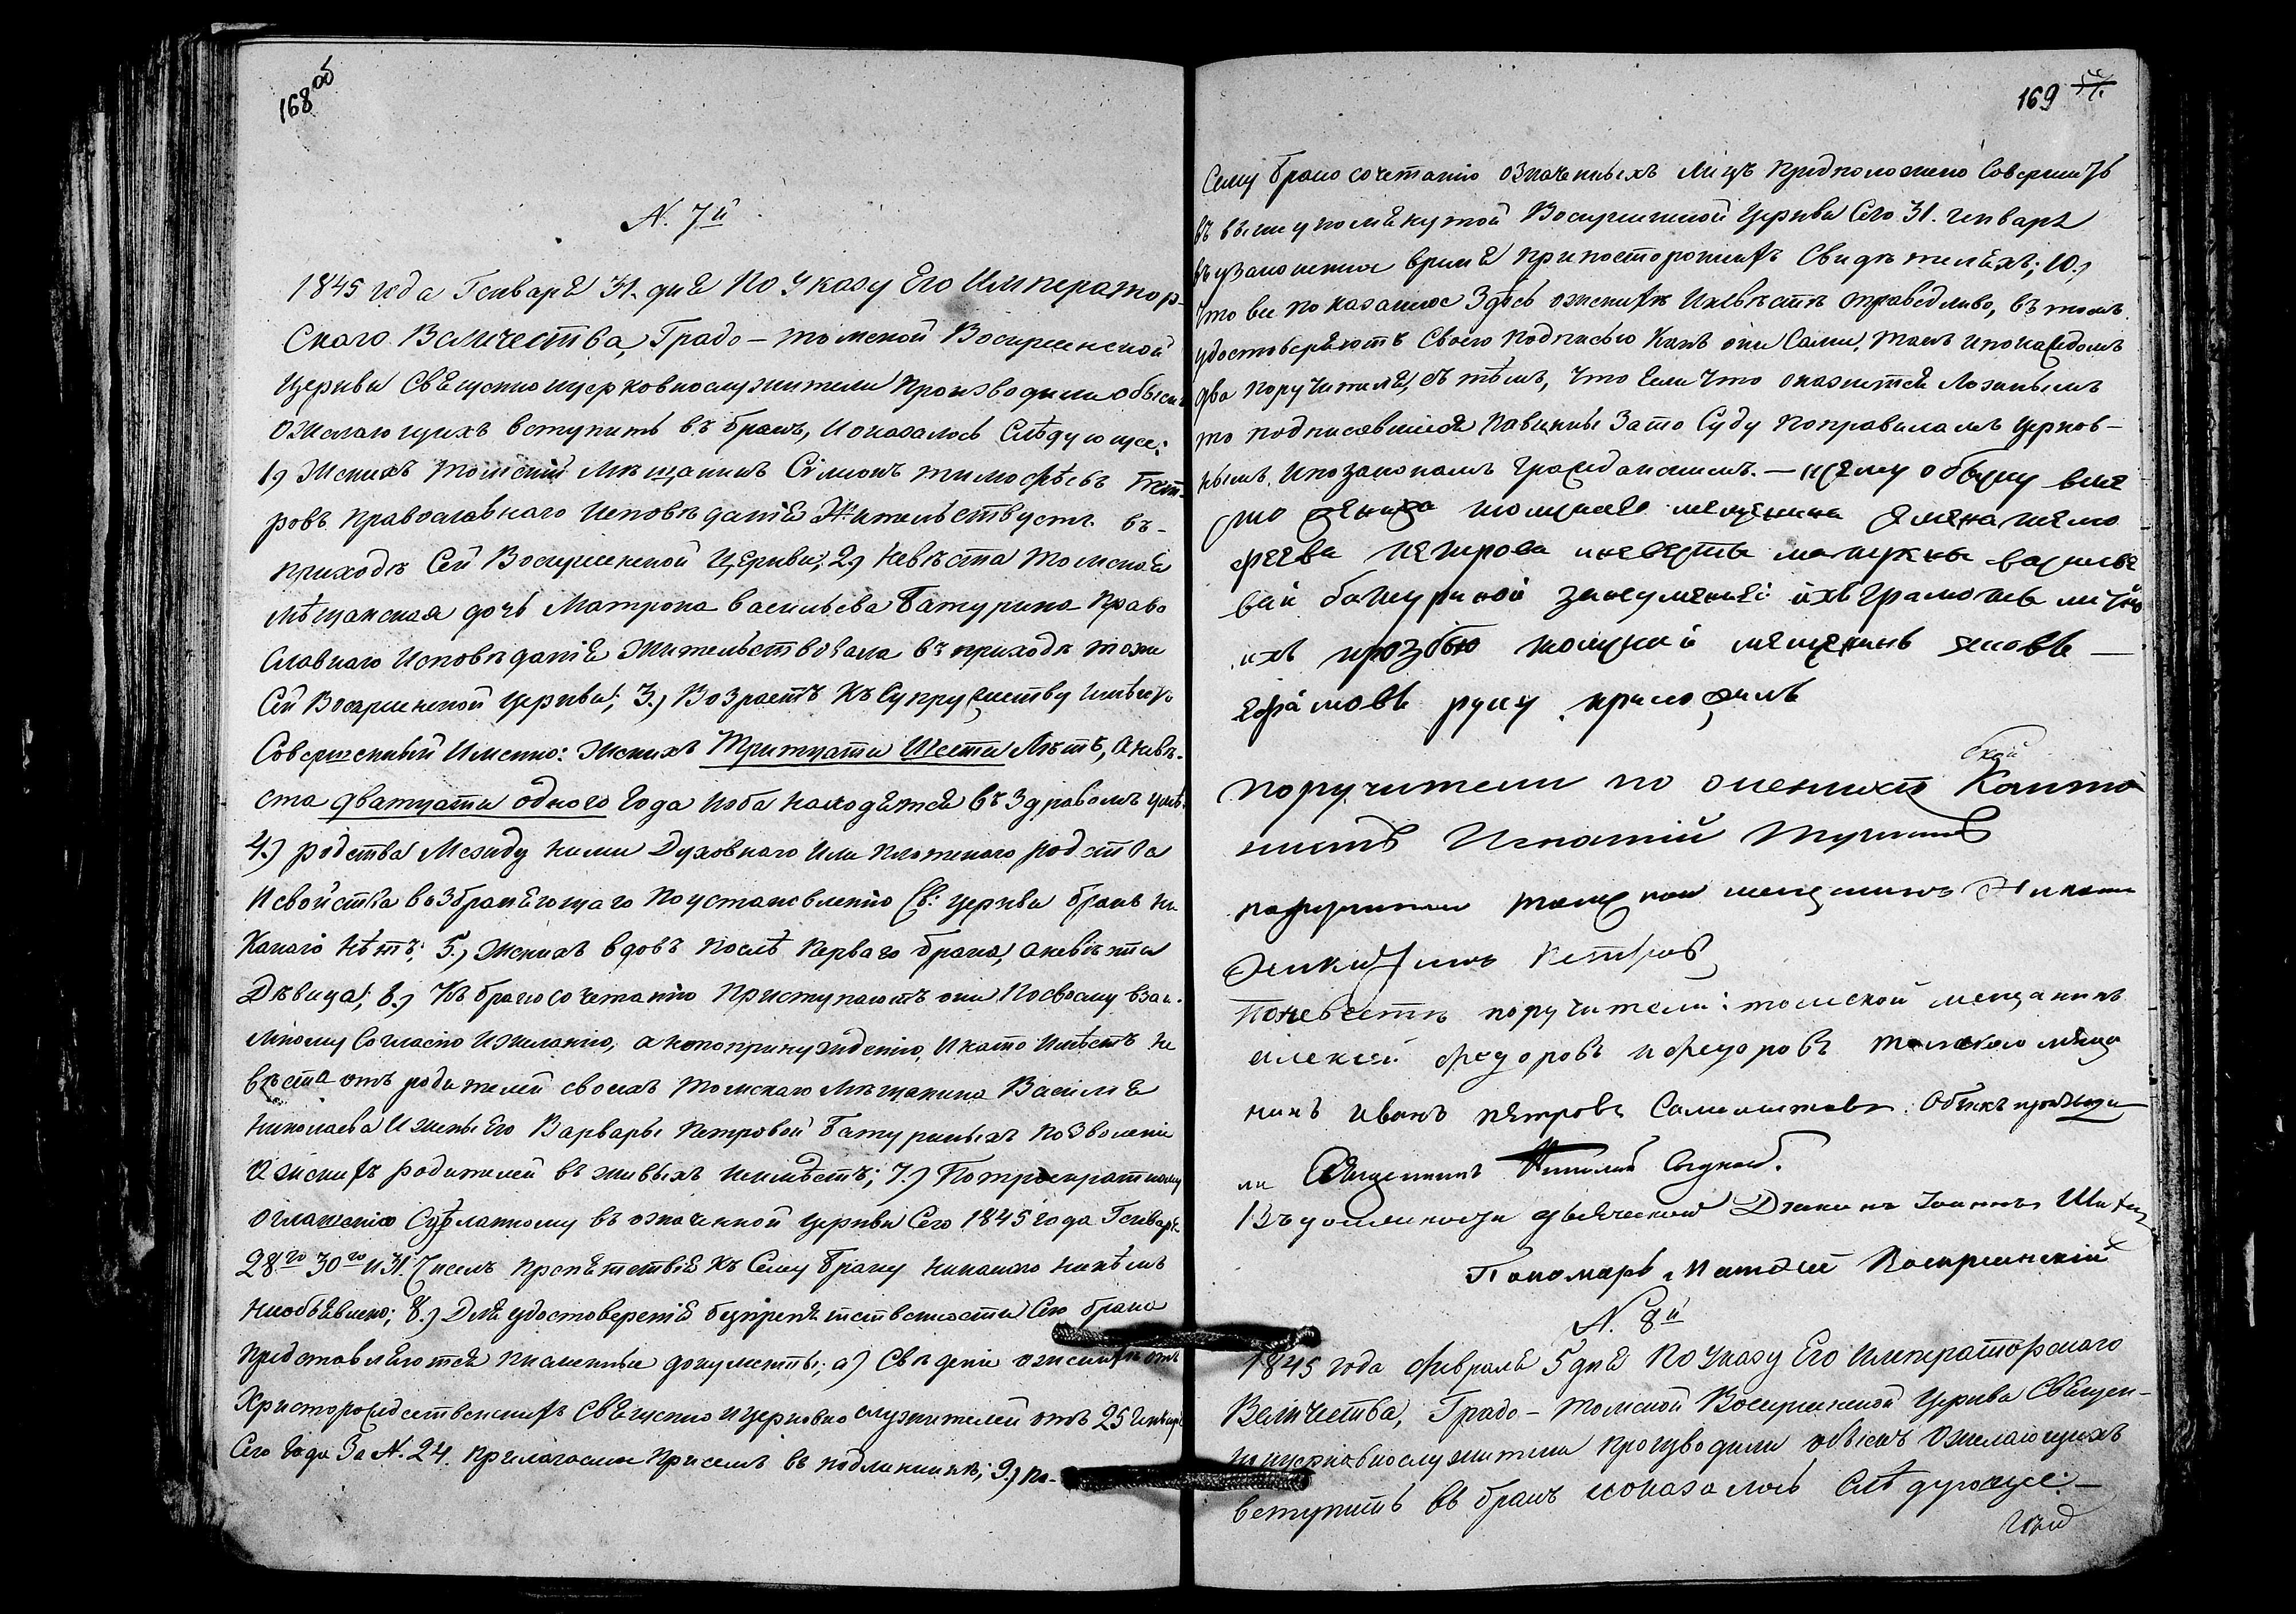 168 об
N. 7й
1845 года Генваря 31. дня По Указу Его Император-
скаго Величества, Градо-Томской Воскресенской
Церкви Священно церковнослужители Производили обыскъ
Ожелающихъ вступить въ бракъ, и оказалось Слѣдующее:
1) Женихъ Томский Мѣщанинъ Сімионъ Тимофѣевъ Пет-
ровъ Православнаго Исповѣданія Жительствуетъ въ-
приходѣ Сей Воскресенской Церкви; 2) Невѣста Томская
Мѣщанская дочь Матрона Васильева Батурина Право
славнаго Исповѣданія Жительствовала въ приходѣ тоже
Сей Воскресенской Церкви; 3.) Возрастъ Къ Супружеству Имѣютъ
Совершенный Именно: Женихъ Тритцати Шести Лѣтъ, А невѣ-
ста дватцати одного Года И оба находятся въ Здравомъ умѣ.
4.) родства Между Ними Духовнаго Или Плотскаго родства
И свойства возбраняющаго По установленію Св: Церкви бракъ Ни
Какаго Нѣтъ; 5.) Женихъ вдовъ Послѣ Перваго брака, а невѣста
Дѣвица; 6.) Къ бракосочетанію Приступаютъ они По своему взаи-
мному Согласію И желанію, а не по принужденію, И на то Имѣетъ Не
вѣста отъ родителей своихъ Томскаго Мѣщанина Василія
Николаева И жены Его Варвары Петровой Батуриныхъ Позволеніе
А женихъ родителей въ живыхъ неимѣетъ; 7.) По троекратному
оглашенію Сдѣланному въ означенной Церкви Сего 1845 года Генваря
28го 30го и 31. Числъ Препятствія Къ Сему браку Никакого Никѣмъ
Необъявлено; 8.) Для удостоверенія безпрепятственности Сего брака
Представляются Писменные документы: а) Свѣденіе о женихѣ отъ
Христорождественскихъ Священно и церковно служителей отъ 25 Генваря
Сего Года За N. 24. Прилагаемое При семъ въ подлинникѣ; 9.) По-
169
Сему бракосочетанію означенныхъ Лицъ Предположено Совершить
въ вышеупомянутой Воскресенской Церкви Сего 31. генваря
въ узаконенное время При постороннихъ Свидѣтеляхъ; 10.)
Что все показанное Здѣсь о женихѣ И невѣстѣ справедливо, въ томъ
удостоверяютъ Своею Подписью Какъ они Сами, такъ и по каждомъ
два Поручителя, съ тѣмъ, Что Если Что окажется Ложнымъ
то подписавшіеся Повинны За то Суду По правиламъ Церков-
нымъ, И по законамъ Гражданскимъ. — Ксему обыску вме
сто жениха томскаго мещенина Семена тимо
феева петрова и невесты матрены василье
вай батуриной занеуменией ихъ грамоты лично
ихъ прозбою томской мещенинъ яковъ —
ефимовъ руку приложилъ
поручители по женихе
Игнатий
поручители томской мещенинъ
Петровъ
По невесте поручители: томской мещанинъ
алексей федоровъ и федоровъ томской меща
нинъ иванъ петровъ Обыскъ производи
ли Священникъ
Въ должности дьяческой Діаконъ Іоаннъ
Пономарь Матфей Воскресенский
N. 8й
1845 года Февраля 5 дня По Указу Его Императорскаго
Величества, Градо-Томской Воскресенской Церкви Священ-
но церковнослужители производили обыскъ Ожелающихъ
вступить въ бракъ и оказалось Слѣдующее:—